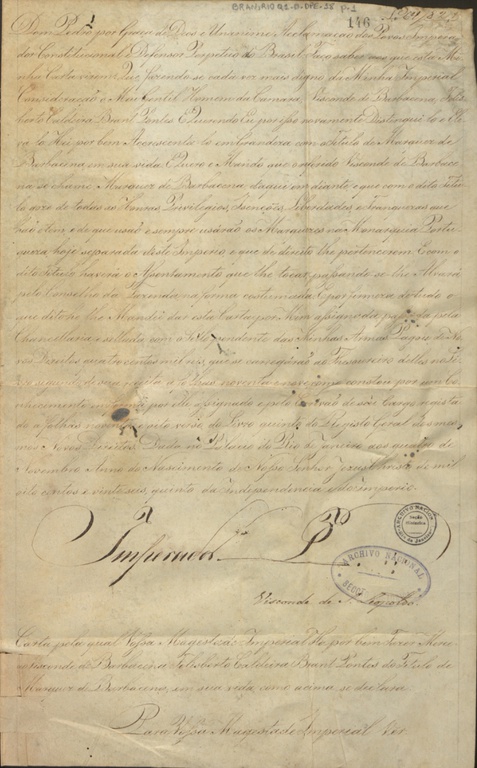 BR AN,RIO Q1.0.DPE.25 P-1
146
Dom Pedro por Graça de Deos e Unanime Acclamação dos Povos, Impera-
dor Constitucional e Defensor Perpetuo do Brasil Faço saber aos que esta Mi-
nha Carta virem, Que fazendo-se cada vez mais digno da Minha Imperial
Consideração o Meu Gentil Homem da Camara, Visconde de Barbacena, Felis-
berto Caldeira Brant Pontes E Querendo Eu por isso novamente Distinguil-o e Ele-
va-lo Hei por bem Accrescenta-lo em Grandeza com o Titulo de Marquez de
Barbacena em sua vida E quero e Mando que o referido Visconde de Barbace-
na se chame Marquez de Barbacena daqui em diante e que com o dito Titu-
lo goze de todas as Honras, Privilegios, Isenções, Liberdades, e Franquezas que
hão e tem, e de que usão e sempre usárão os Marquezes na Monarquia Portu-
gueza hoje separada deste Imperio e que de direito lhe pertencerem E com o
dito Titulo haverá o Assentamento que lhe tocar passando-se-lhe Alvará
pelo Conselho da Fazenda na forma costumada E por firmeza de tudo o
que dito he lhe Mandei dar esta Carta por Mim assignada passada pela
Chancellaria e sellada com o Sello pendente das Minhas Armas Pagou de No-
vos Direitos quatro centos mil reis, que se carregárão ao Thesoureiro delles no li-
vro segundo de sua receita a folhas noventa e nove como constou por um co-
nhecimento em forma por elle assignado e pelo Escrivão de seu Cargo regista-
do a folhas noventa verso do Livro quinto do Registo Geral dos mes-
mos Novos Direitos. Dada no Palacio do Rio de Janeiro aos quatro de
Novembro Anno do Nascimento de Nosso Senhor Jesus Christo de mil
oito centos e vinte seis, quinto da independencia e do imperio.
Imperador P
ARCHIVO NACIONAL
ARCHIVO NACIONAL
Visconde de S. Leopoldo
Carta pela qual Vossa Magestade Imperial Ha por bem Fazer Merce
ao Visconde de Barbacena Felisberto Caldeira Brant Pontes do Titulo de
Marquez de Barbacena, em sua vida, como acima se declara
Para Vossa Magestade Imperial ver